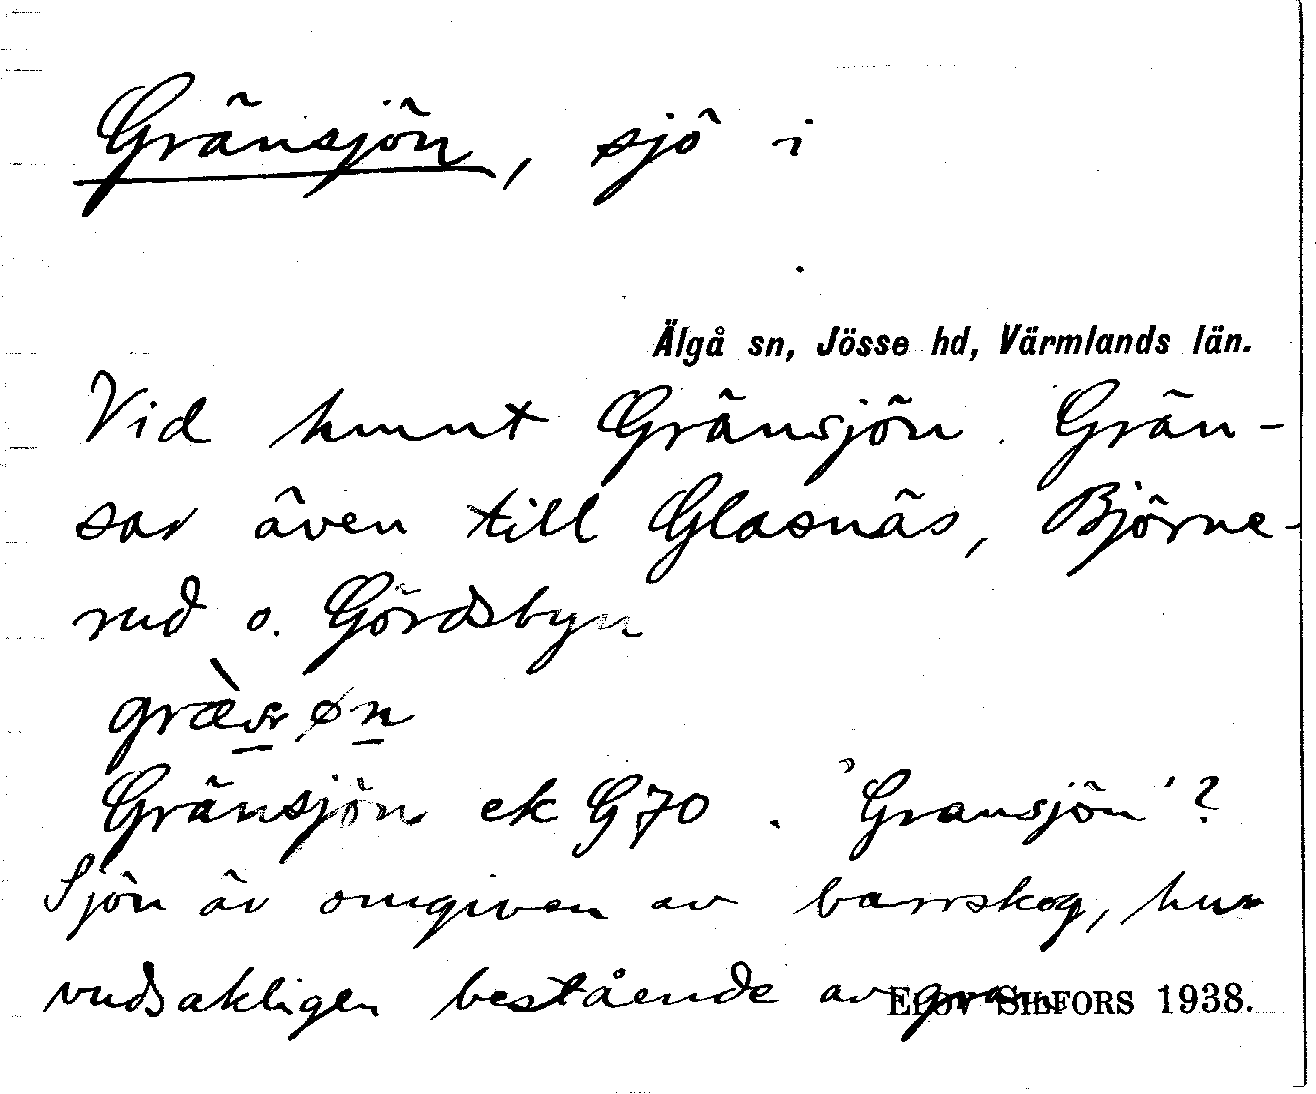 Gränsjön, sjö i
Älgå sn, Jösse hd, Värmlands län.
Vid hmnt Gränsjön. Grän-
sar även till Glasnäs, Björne-
rud o. Gördsbyn
Gränsjön ek G70. 'Gransjön'?
Sjön är omgiven av barrskog, hu-
vudsakligen bestående av gran.
ELOV SILFORS 1938.